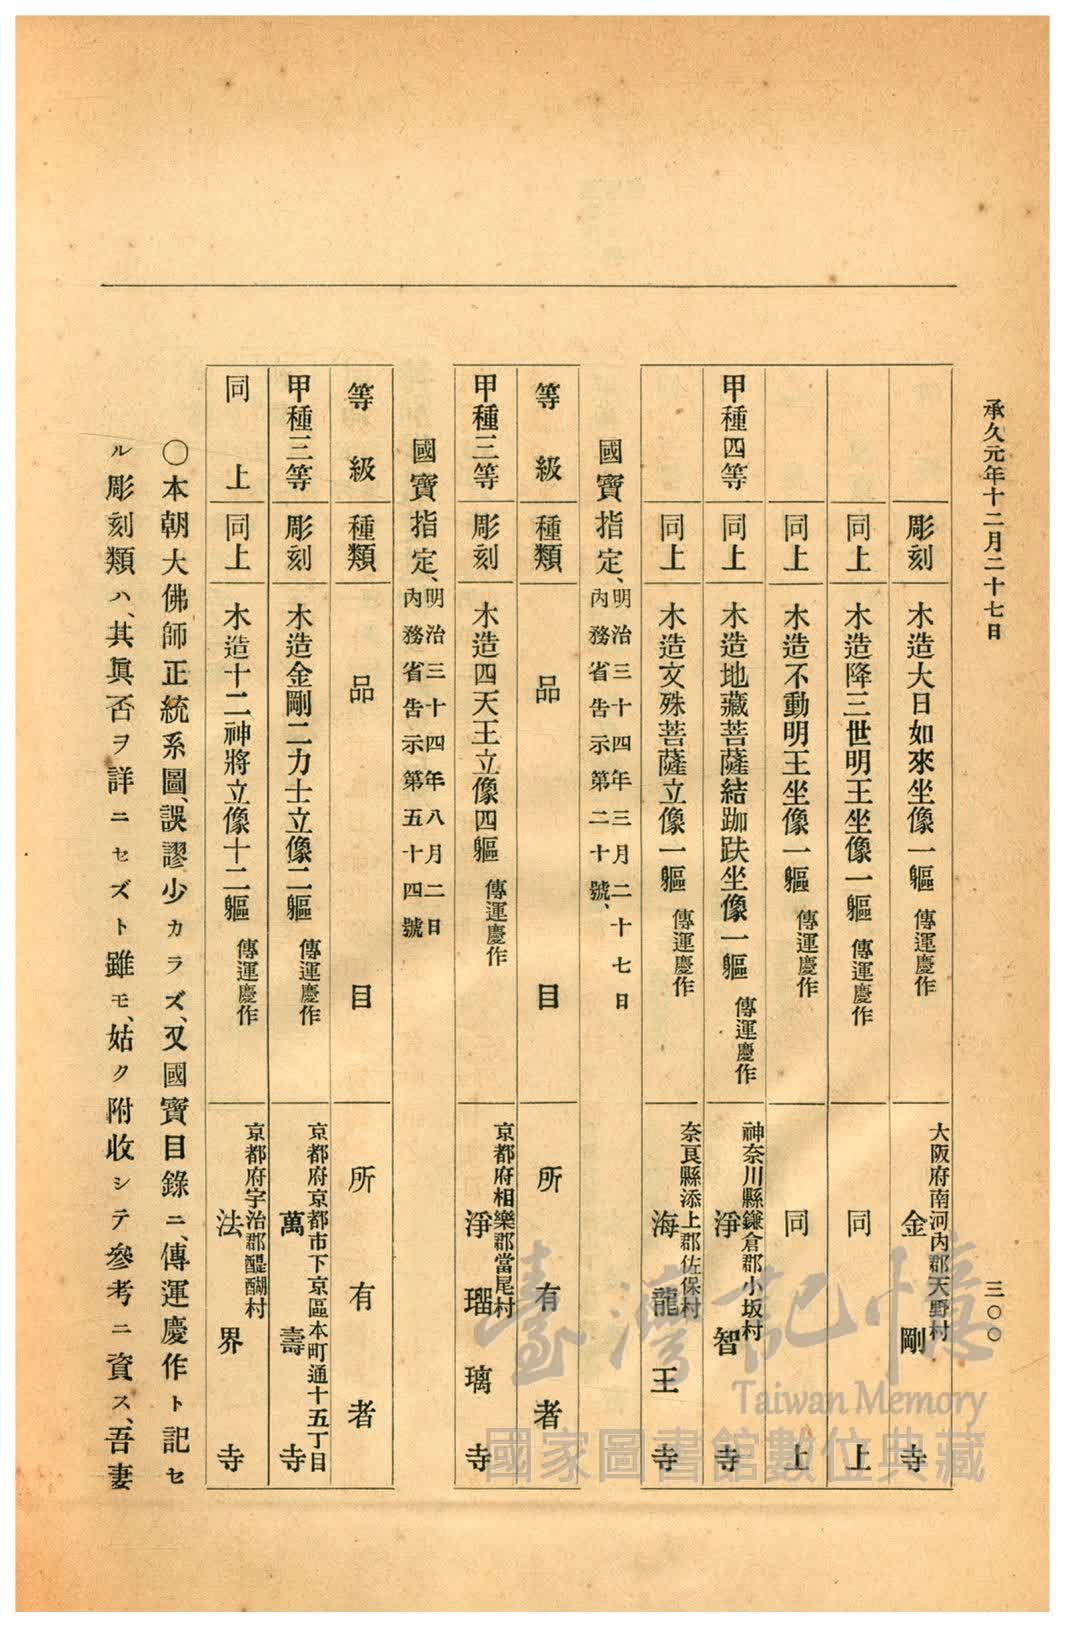 承久元年十二月二十七日
三〇〇
彫刻 木造大日如來坐像一軀 傳運慶作 大阪府南河內郡天野村 金剛寺
同上 木造降三世明王坐像一軀 傳運慶作 同上
同上 木造不動明王坐像一軀 傳運慶作 同上
甲種四等 同上 木造地藏菩薩結跏趺坐像一軀 傳運慶作 神奈川縣鎌倉郡小坂村 淨智寺
同上 木造文殊菩薩立像一軀 傳運慶作 奈良縣添上郡佐保村 海龍王寺
國寶指定、明治三十四年三月二十七日
內務省告示第二十號、
等級 種類 品目 所有者
甲種三等 彫刻 木造四天王立像四軀 傳運慶作 京都府相樂郡當尾村 淨瑠璃寺
國寶指定、明治三十四年八月二日
內務省告示第五十四號
等級 種類 品目 所有者
甲種三等 彫刻 木造金剛二力士立像二軀 傳運慶作 京都府京都市下京區本町通十五丁目 萬壽寺
同上 同上 木造十二神將立像十二軀 傳運慶作 京都府宇治郡醍醐村 法界寺
〇本朝大佛師正統系圖、誤謬少カラズ、又國寶目錄ニ、傳運慶作ト記セ
ル彫刻類ハ、其眞否ヲ詳ニセズト雖モ、姑ク附收シテ參考ニ資ス、吾妻
臺灣記憶
Taiwan Memory
國家圖書館數位典藏